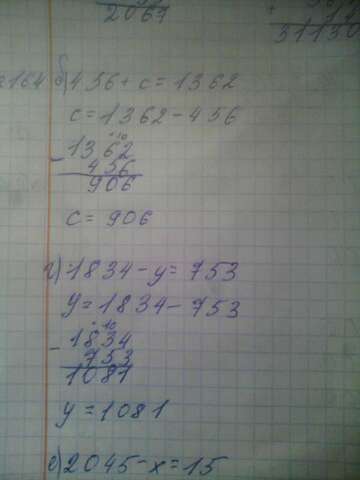 2067
31130
164 б) 456 + c = 1362
c = 1362 - 456
- 1362
456
906
c = 906
г) 1834 - y = 753
y = 1834 - 753
- 1834
753
1081
y = 1081
е) 2045 - x = 15